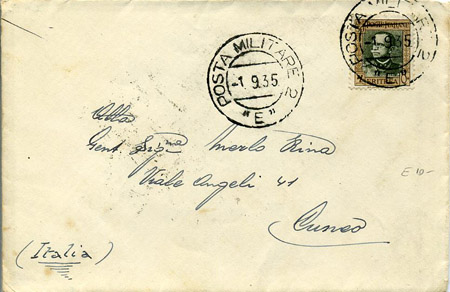 POSTA MILITARE 2
-1.9.35
"E"
POSTA MILITARE
-1.9.35
"E"
ERITREA
Alla
Gent. Sig.na Merlo Rina
Viale Angeli 41
Cuneo
(Italia)
E 10-